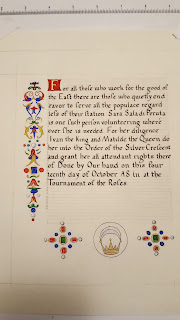 For all those who work for the good of
the East there are those who quietly end
eavor to serve all the populace regard
less of their station. Sara Saladi Perota
is one such person volunteering where
ever She is needed. For her diligence
Ivan the King and Matilde the Queen do
her into the Order of the Silver Crescent
and grant her all attendant rights there
of Done by Our hand on this four
teenth day of October AS in at the
Tournament of the Roses